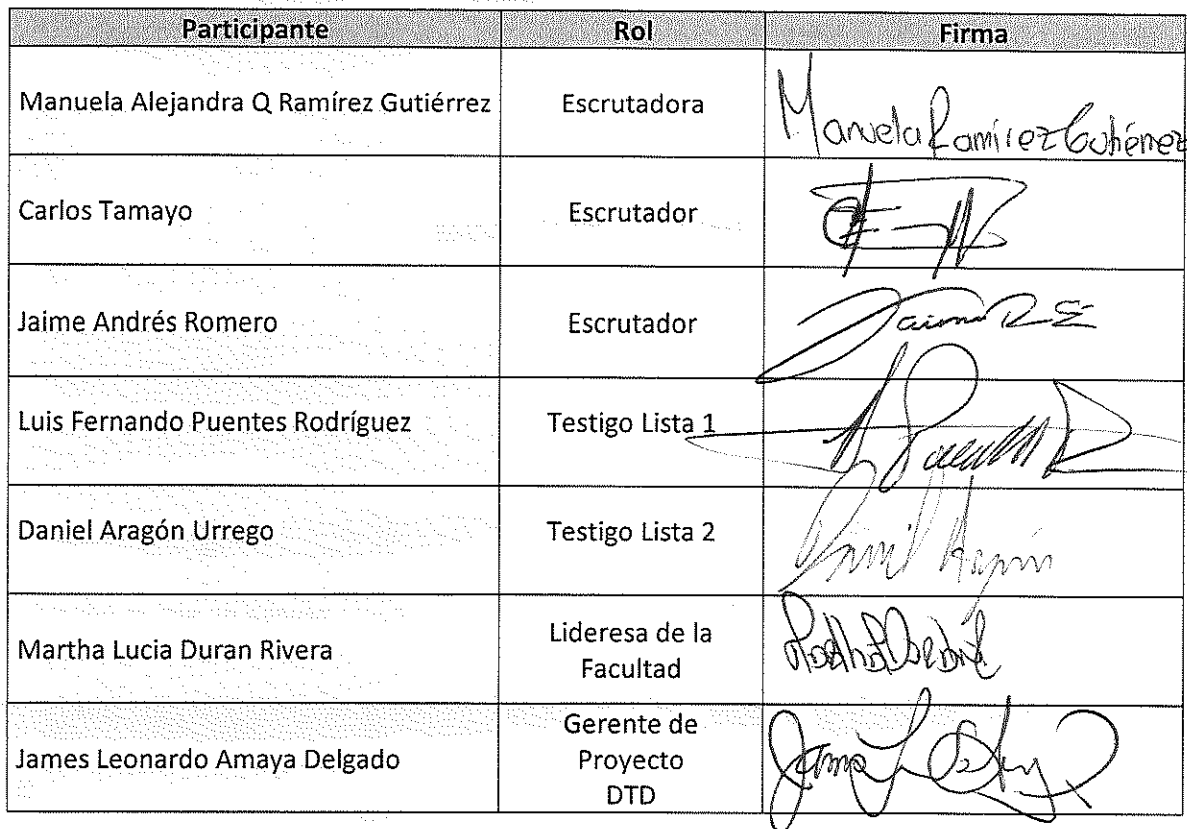 Participante Rol Firma
Manuela Alejandra Q Ramírez Gutiérrez Escrutadora Manuela Ramírez Gutiérrez
Carlos Tamayo Escrutador
Jaime Andrés Romero Escrutador Jaime
Luis Fernando Puentes Rodríguez Testigo Lista 1
Daniel Aragón Urrego Testigo Lista 2
Martha Lucia Duran Rivera Lideresa de la
Facultad
James Leonardo Amaya Delgado Gerente de
Proyecto
DTD